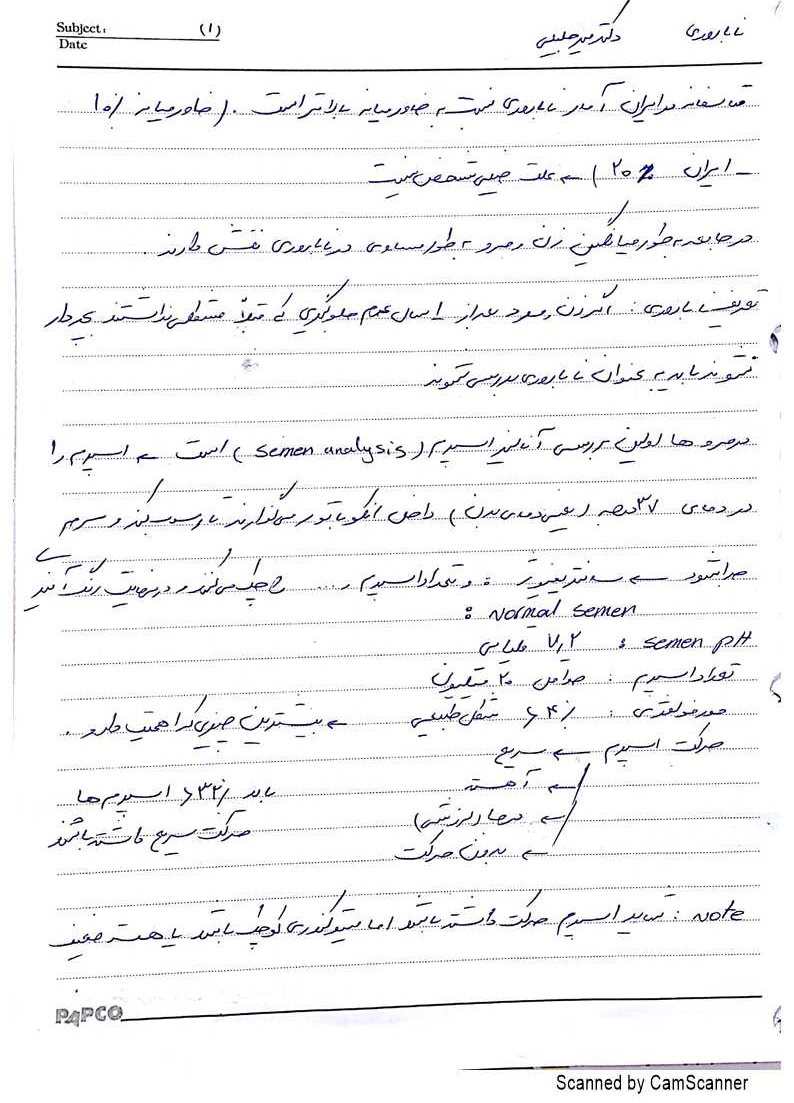 Subject:
(۱)
Date
ناباروری دکتر میرجلیلی
متاسفانه در ایران آمار ناباروری نسبت به خاورمیانه بالاتر است. (خاورمیانه ٪۱۰
- ایران ٪۲۰) ← علت خیلی مشخص نیست
در جامعه به طور میانگین زن و مرد به طور مساوی در ناباروری نقش دارند.
تعریف ناباروری: اگر زن و مرد بعد از ۱ سال عدم جلوگیری که قبلاً مشکلی نداشتند بچه دار
نشوند باید به عنوان ناباروری بررسی شوند
در مرد ها اولین بررسی آنالیز اسپرم (semen analysis) است ← اسپرم را
در دمای ۳۷ درجه (یعنی دمای بدن) داخل انکوباتور می‌گذارند تا رسوب کند و سرم
جدا شود ← سانتریفیوژ و تعداد اسپرم و ... چک می‌کنند و در نهایت رنگ آمیزی
Normal semen:
semen pH: ۷٫۲
تعداد اسپرم: حداقل ۲۰ میلیون
مورفولوژی: ٪۴< شکل طبیعی ← بیشترین چیزی که اهمیت دارد.
حرکت اسپرم ← سریع
← آهسته
باید ٪۳۲< اسپرم ها
← درجا (لرزشی)
حرکت سریع داشته باشند
← بدون حرکت
Note: شاید اسپرم حرکت داشته باشد اما میتوکندری کوچک باشد یا هسته ضعیف
PAPCO
Scanned by CamScanner